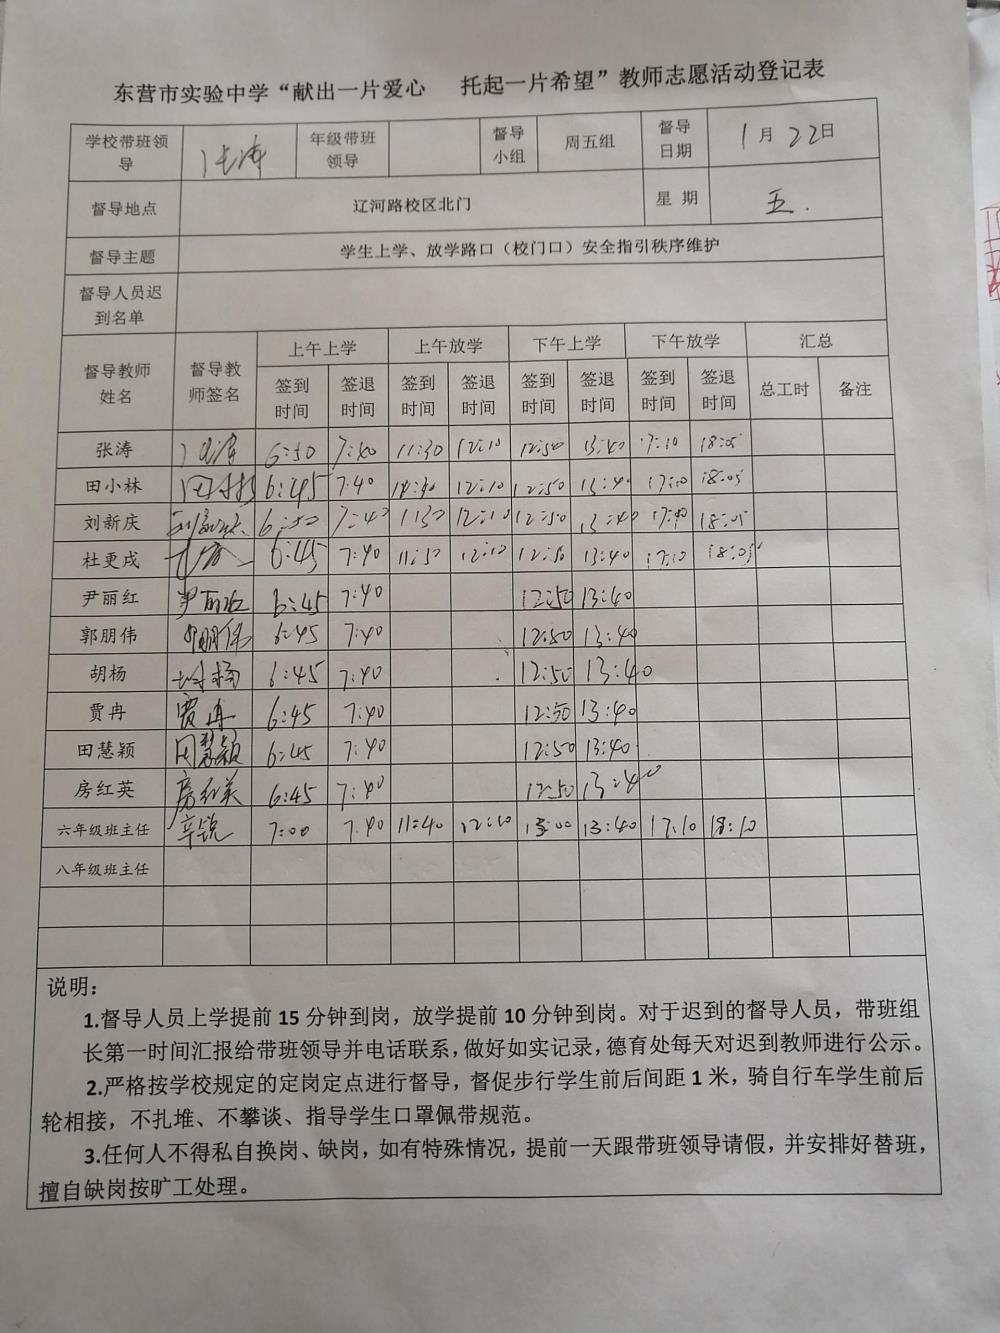 东营市实验中学“献出一片爱心 托起一片希望”教师志愿活动登记表
学校带班领导 张涛 年级带班领导 督导小组 周五组 督导日期 1月22日
督导地点 辽河路校区北门 星期 五.
督导主题 学生上学、放学路口（校门口）安全指引秩序维护
督导人员迟到名单
督导教师姓名 督导教师签名 上午上学 上午放学 下午上学 下午放学 汇总
签到时间 签退时间 签到时间 签退时间 签到时间 签退时间 签到时间 签退时间 总工时 备注
张涛 张涛 6:50 7:40 11:30 12:10 12:50 13:40 17:10 18:05
田小林 田小林 6:45 7:40 12:10 12:50 13:40 17:10 18:05
刘新庆 刘新庆 6:50 7:40 1130 12:10 12:50 13:40 18:05
杜更戌 6:45 7:40 11:30 12:10 12:50 13:40 17:10 18:05
尹丽红 尹丽红 6:45 7:40 12:50 13:40
郭朋伟 郭朋伟 6:45 7:40 12:50 13:40
胡杨 胡杨 6:45 7:40 12:50 13:40
贾冉 贾冉 6:45 7:40 12:50 13:40
田慧颖 田慧颖 6:45 7:40 12:50 13:40
房红英 房红英 6:45 7:40 12:50 13:40
六年级班主任 辛锐 7:00 7:40 11:40 12:10 13:00 13:40 17:10 18:10
八年级班主任
说明：
1.督导人员上学提前 15 分钟到岗，放学提前 10 分钟到岗。对于迟到的督导人员，带班组
长第一时间汇报给带班领导并电话联系，做好如实记录，德育处每天对迟到教师进行公示。
2.严格按学校规定的定岗定点进行督导，督促步行学生前后间距 1 米，骑自行车学生前后
轮相接，不扎堆、不攀谈、指导学生口罩佩带规范。
3.任何人不得私自换岗、缺岗，如有特殊情况，提前一天跟带班领导请假，并安排好替班，
擅自缺岗按旷工处理。